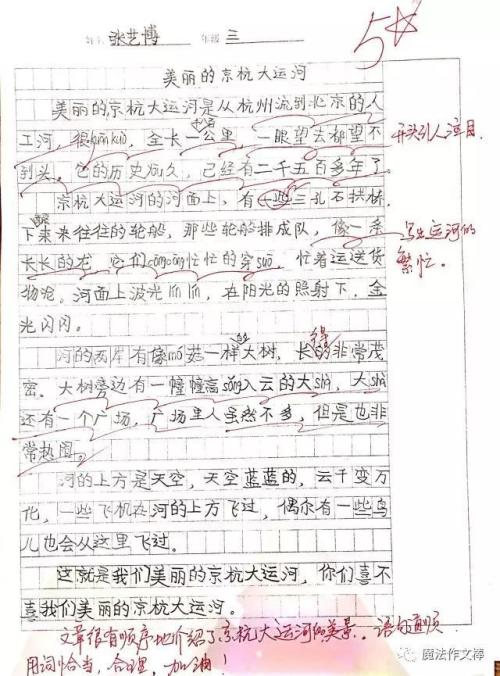 张艺博 年级 三
5☆
美丽的京杭大运河
美丽的京杭大运河是从杭州流到北京的人
工河，很kuān kuò，全长一公里，一眼望去都望不
到头。它的历史悠久，已经有二千五百多年了。
开头引人注目
京杭大运河的河面上，有一些三孔石拱桥，
下来来往往的轮船，那些轮船排成队，像一条
长长的龙，它们cōng cōng忙忙的穿suō，忙着运送货
物呢。河面上波光lín lín，在阳光的照射下，金
光闪闪。
写出运河的
繁忙。
河的两岸有像mó菇一样大树，长的非常茂
得
密。大树旁边有一幢幢高sǒng入云的大shà，大shà
还有一个广场，广场里人虽然不多，但是也非
常热闹。
河的上方是天空，天空蓝蓝的，云千变万
化，一些飞机在河的上方飞过，偶尔有一些鸟
儿也会从这里飞过。
这就是我们美丽的京杭大运河，你们喜不
喜我们美丽的京杭大运河。
文章很有顺序地介绍了京杭大运河的美景。语句通顺
用词恰当，合理，加油！
魔法作文棒